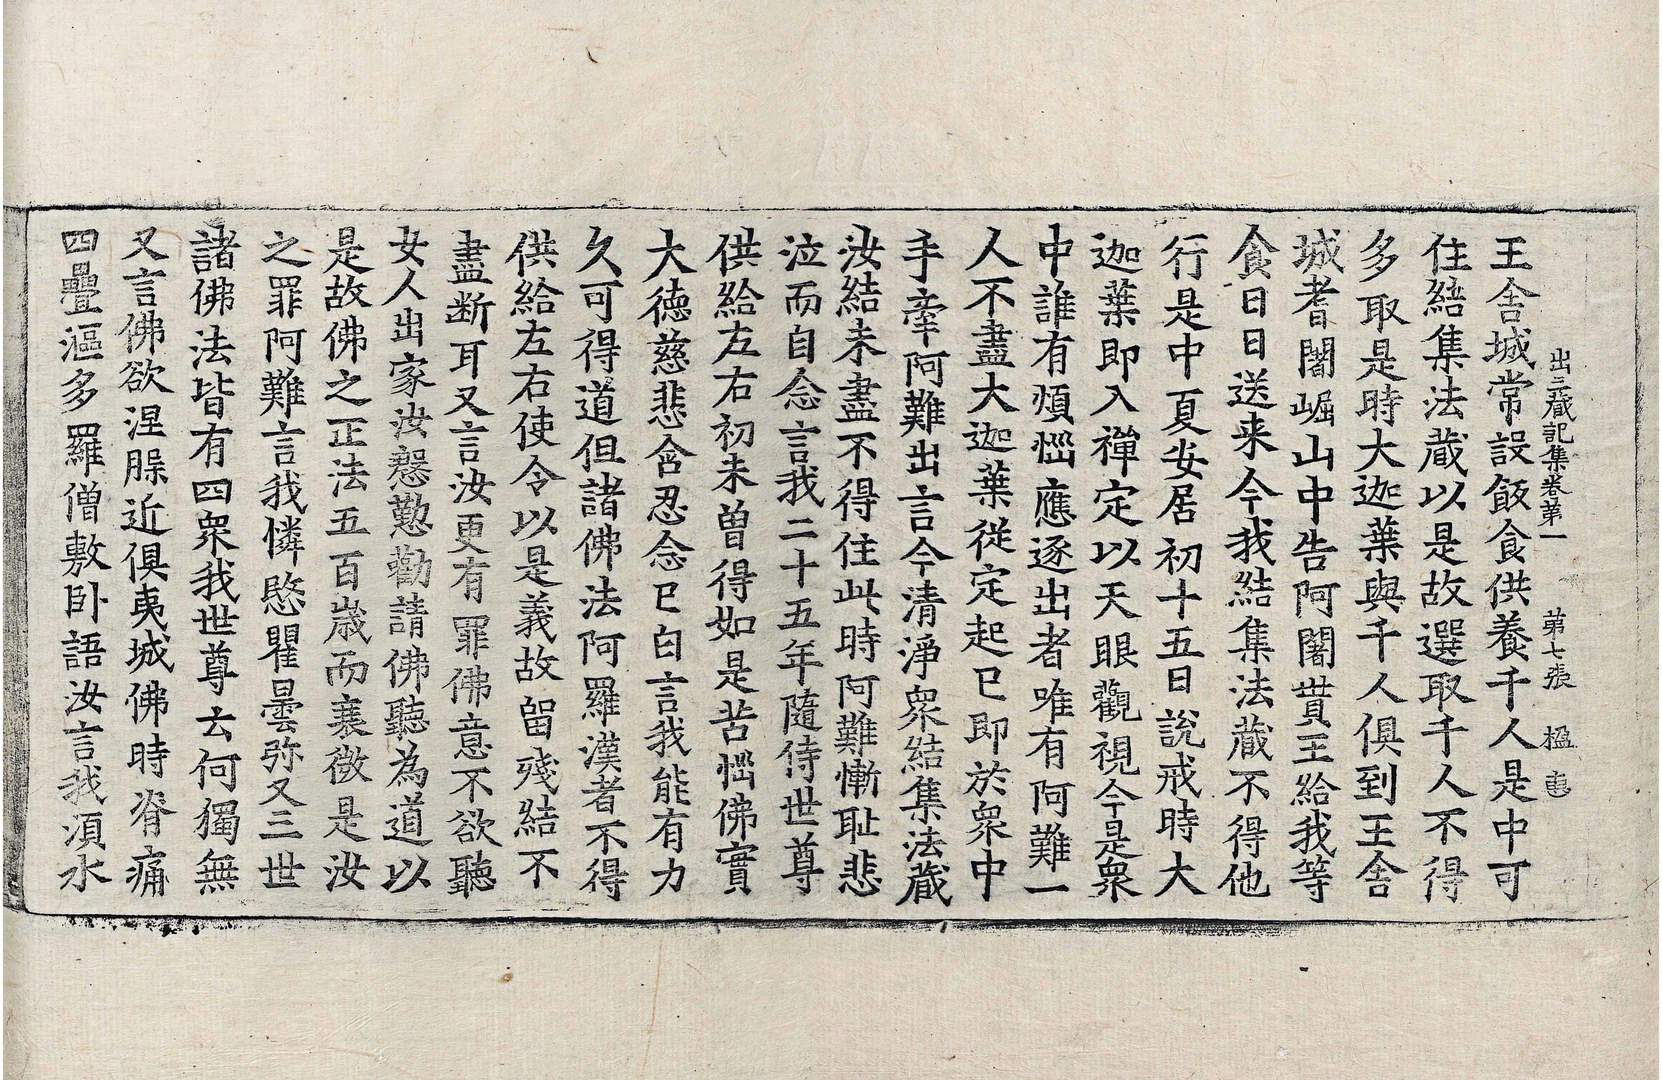 出三藏記集卷第一　第七張　楹
王舍城常設飯食供養千人是中可
住結集法藏以是故選取千人不得
多取是時大迦葉與千人俱到王舍
城耆闍崛山中告阿闍貰王給我等
食日日送来今我結集法藏不得他
行是中夏安居初十五日說戒時大
迦葉即入禪定以天眼觀視今是眾
中誰有煩惱應逐出者唯有阿難一
人不盡大迦葉從定起已即於眾中
手牽阿難出言今清淨眾結集法藏
汝結未盡不得住此時阿難慚耻悲
泣而自念言我二十五年隨侍世尊
供給左右初未曾得如是苦惱佛實
大德慈悲含忍念已白言我能有力
久可得道但諸佛法阿羅漢者不得
供給左右使令以是義故留殘結不
盡断耳又言汝更有罪佛意不欲聽
女人出家汝慇懃勸請佛聽為道以
是故佛之正法五百歲而衰微是汝
之罪阿難言我憐愍瞿曇弥又三世
諸佛法皆有四眾我世尊云何獨無
又言佛欲涅槃近俱夷城佛時脊痛
四疊漚多羅僧敷卧語汝言我湏水